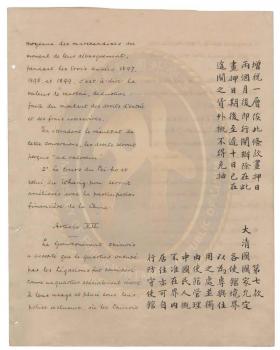 moyenne des marchandises au
moment de leur débarquement,
pendant les trois années 1897,
1898 et 1899, c'est-à-dire la
valeur de marché, déduction
faite du montant des droits d'entrée
et des frais accessoires.
En attendant le résultat de
cette conversion, les droits seront
perçus "ad valorem".
2° Le cours du Pei-ho et
celui du Whang-pou seront
améliorés avec la participation
financière de la Chine.
Article VII
Le Gouvernement chinois
a accepté que le quartier occupé
par les Légations fût considéré
comme un quartier spécialement réservé
à leur usage et placé sous leur
police exclusive, où les Chinois
增稅一層俟此條款畫押日
兩個月後即行開辦除在此
畫押日期後至遲十日已在
途間之貨外概不得免抽
第七款
大清國國家允定
各使館境界
以為專與住
用之處並獨
由使館管理
中國民人概
不准在界內
居住亦可自
行防守使館